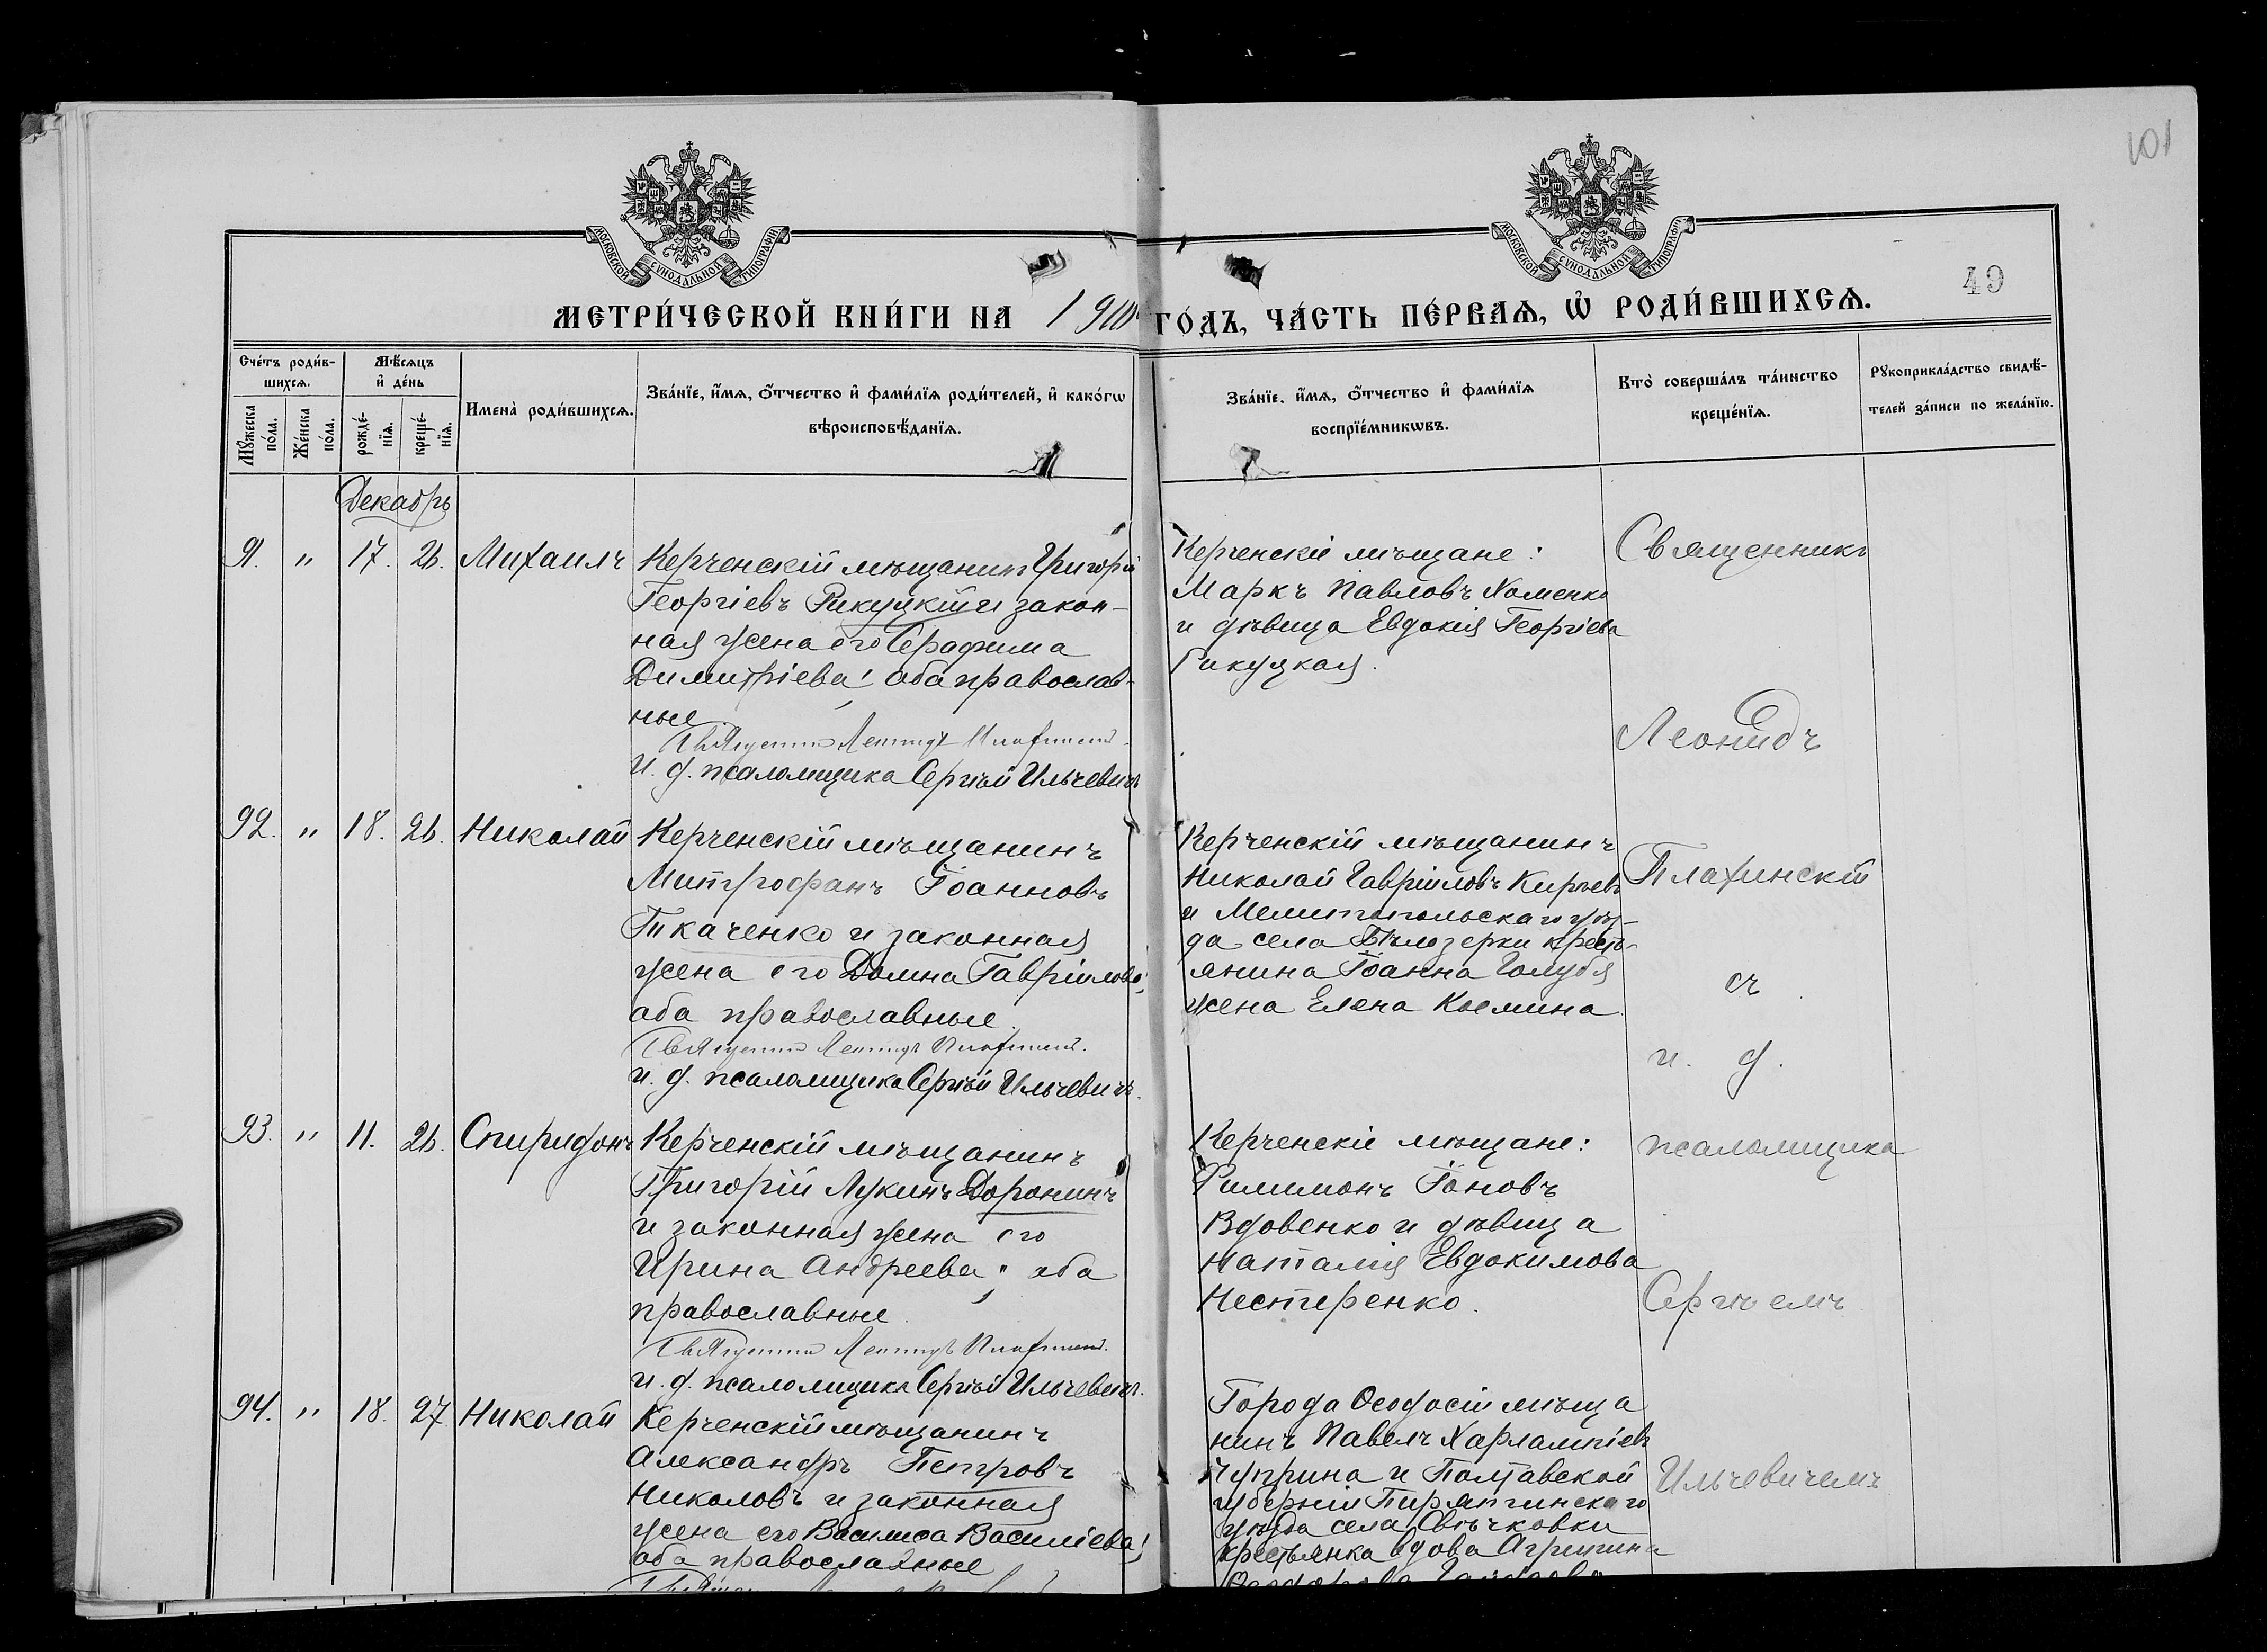 101
МОСКОВСКОЙ СѴНОДАЛЬНОЙ ТИПОГРАФІИ
МОСКОВСКОЙ СѴНОДАЛЬНОЙ ТИПОГРАФІИ
49
МЕТРИ́ЧЕСКОЙ КНИ́ГИ НА
ГО́ДЪ, ЧА́СТЬ ПЕ́РВАѦ, Ѡ҆ РОДИ́ВШИХСѦ.
Сче́тъ роди́в-
шихсѧ.
Мꙋжеска по́ла.
Же́нска по́ла.
Мѣ́сѧцъ
и҆ де́нь
рожде́-
нїѧ.
креще́-
нїѧ.
Имена̀ роди́вшихсѧ.
Зва́нїе, и҆́мѧ, ѻ҆́тчество и҆ фами́лїѧ роди́телей, и҆ како́гѡ
вѣроисповѣ́данїѧ.
Зва́нїе, и҆́мѧ, ѻ҆́тчество и҆ фами́лїѧ
воспрїе́мникѡвъ.
Кто̀ соверша́лъ та́инство
креще́нїѧ.
Рꙋкоприкла́дство свидѣ́-
телей за́писи по жела́нїю.
Декабрь
91. " 17. 26. Михаилъ
Керченскій мѣщанинъ Григорій
Георгіевъ Рикуцкій и закон-
ная жена его Серафима
Димитріева, оба православ-
ные.
Священникъ Леонидъ Плахинскій.
и. д. псаломщика Сергѣй Ильчевичъ
Керченскіе мѣщане:
Маркъ Павловъ Хоменко
и дѣвица Евдокія Георгіева
Рикуцкая.
92. " 18. 26. Николай
Керченскій мѣщанинъ
Митрофанъ Іоанновъ
Ткаченко и законная
жена его Домна Гавріилова,
оба православные.
Священникъ Леонидъ Плахинскій.
и. д. псаломщика Сергѣй Ильчевичъ.
Керченскій мѣщанинъ
Николай Гавріиловъ
и Мелитопольскаго уѣз-
да села Бѣлозерки кресть-
янина Іоанна Голубя
жена Елена Космина.
93. " 11. 26. Спиридонъ
Керченскій мѣщанинъ
Григорій Лукинъ Доронинъ
и законная жена его
Ирина Андреева, оба
православные.
Священникъ Леонидъ Плахинскій.
и. д. псаломщика Сергѣй Ильчевичъ.
Керченскіе мѣщане:
Филимонъ Іоновъ
Вдовенко и дѣвица
Наталія Евдокимова
Нестеренко.
94. " 18. 27 Николай
Керченскій мѣщанинъ
Александръ Петровъ
Николовъ и законная
жена его Василиса Василіева,
оба православные
Города Ѳеодосіи мѣща
нинъ Павелъ Харлампіевъ
Чуприна и Полтавской
губерніи Пирятинскаго
уѣзда села Свѣчковки
крестьянка вдова Агрипина
Священникъ
Леонидъ
Плахинскій
съ
и. д.
псаломщика
Сергѣемъ
Ильчевичемъ